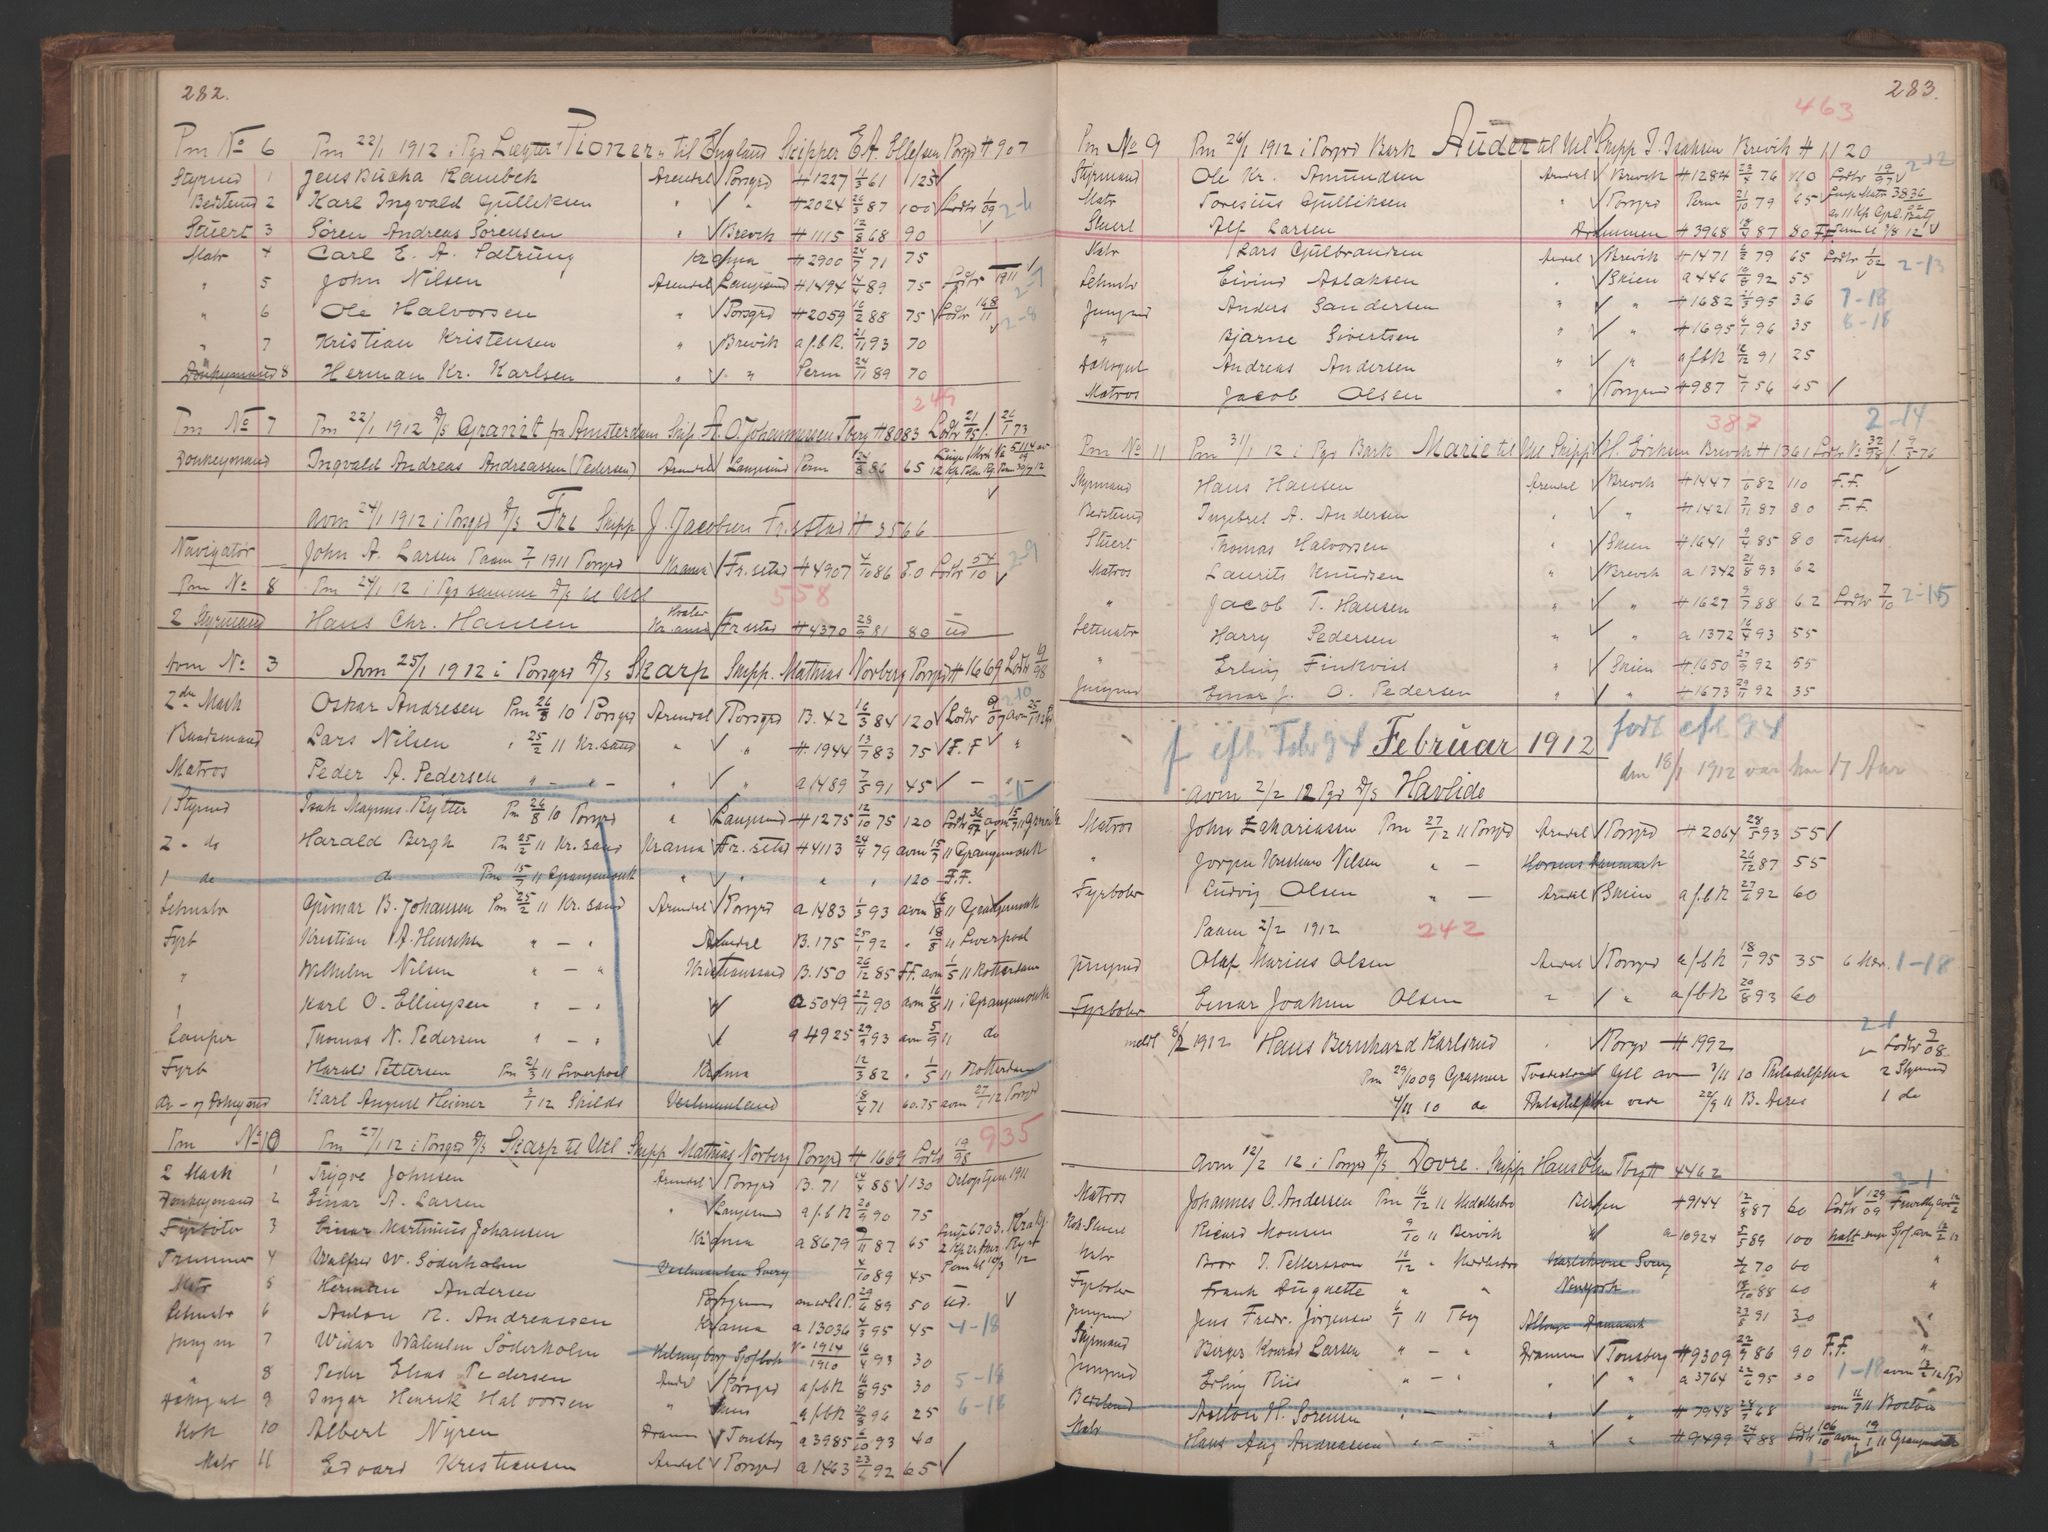 282.
Pm No 6 Pm 22/1 1912 i Pgr Lægter "Pioner" til England Skipper E A. Ellefsen Porsgr H 907
Styrmd 1 Jens Bucha Rambek Arendel Porsgrd H 1227 11/3 61 125
Bedstmd 2 Karl Ingvald Gulliksen " " H 2024 26/3 87 100 Lodtr 1/09 2-6
Stüert 3 Sören Andreas Sörensen " Brevik H 1115 12/8 68 90
Matr 4 Carl E. A. Kr ania H 2900 24/7 71 75
" 5 John Nilsen Arendel Langesund H 1494 14/4 89 75 Lodtr 1911 2-7
" 6 Ole Halvorsen " Porsgrd H 2059 16/2 88 75 Lodtr 168/11 2-8
" 7 Kristian Kristensen " Brevik a.f.b R. 21/11 93 70
Donkeymand 8 Herman Kr. Karlsen " " Perm 24/11 89 70
247
Pm No 7 Pm 22/1 1912 D/S Granit fra Amsterdam Skip. A. O. Johannessen Tbrg H 8083 Lodtr 21/95 f. 26/1 73
Donkeymand Ingvald Andreas Andreassen (Pedersen) Arendel Langesund Perm 24/8 86 65
avm 24/1 1912 i Porsgrd D/S Fre Skipp J. Jacobsen Fr.stad H 3566
Navigatør John A. Larsen Paam 7/1 1911 Porsgrd Krania Fr.stad H 4907 4/10 86 60 Lodtr 54/10 2-9
Pm No 8 Pm 24/1 12 i Pgr samme D/S til Utl 558
2 Styrmand Hans Chr. Hansen Hvaler Kr.ania Fr.stad H 4370 23/9 81 80 ud
avm No 3 Avm 25/1 1912 i Porsgrd D/S Skarp Skipp. Mathias Norberg Porsgrd H 1669 Lodtr 19/98
2den Mask Oskar Andresen Pm 26/8 10 Porsgrd Arendel Porsgrd B. 42 16/3 84 120 Lodtr 9/07 avm 25/1 12 2-10
Baadsmand Lars Nilsen " 25/2 11 Kr.sand " " H 1944 13/7 83 75 F. F "
Matros Peder A. Pedersen " - " - " " a 1489 7/5 91 45 - "
1 Styrmd Isak Magnus Rytter Pm 26/8 10 Porsgrd " Langesund H 1275 12/10 75 120 Lodtr 36/97 avm 15/7 11 Grmouth
2 - do Harald Bergh Pm 25/2 11 Kr.sand Krania Fr.stad H 4113 24/4 79 avm 15/7 11 Grangemouth
1 do do Pm 15/7 11 Grangemouth " " " " 120 F.F.
Letmatr Gunnar B. Johansen Pm 25/2 11 Kr.sand Arendel Porsgrd a 1483 1/3 93 avm 16/8 11 Grangemouth
Fyrb Kristian A. Henriksen " - " Arendel B. 175 25/1 92 " 18/8 11 Liverpool
" Wilhelm Nilsen " - " Kristianssand B. 150 26/12 85 F.F. avm 1/5 11 Rotterdam
" Karl O. Ellingsen " - " " a 5049 22/11 90 avm 16/8 11 i Grangemouth
Lemper Thomas N. Pedersen " - " " a 4925 29/4 93 avm 5/9 11 do
Fyrb Harald Pettersen Pm 21/3 11 Liverpool Krania 12/3 82 " 1/5 11 Rotterdam
do - og Dkeymd Karl August Heimer 3/1 12 Skilds Vermanland 18/4 71 60.75 avm 27/1 12 Porsgrd
935
Pm No 10 Pm 27/1 12 i Porsgrd D/S Skarp til Utl Skipp Mathias Norberg Porsgrd H 1669 Lodtr 19/98
2 Mask 1 Trygve Johnsen Arendel Porsgrd B. 71 24/4 88 130 1911
Donkeymand 2 Einar A. Larsen " Langesund a.f.b R 20/9 90 75
Fyrböter 3 Einar Martinius Johansen Krania a 8679 7/11 87 65
Trimmer 4 Walfred W. Söderholm 4/10 89 45
Matr 5 Herman Andersen Porsgrund 29/6 89 50 ud.
Letmatr 6 Anton R. Andreassen Krania a 13036 4/3 95 45 4-18
Jungm 7 Widar Walentin Söderholm 1914/1910 16/4 93 30
" 8 Peder Elias Pedersen Arndel Porsgrd a f b R 16/8 95 30 5-18
Dæksgut 9 Ingar Henrik Halvorsen " a f b R 20/3 96 25 6-18
Kok 10 Albert Nyren Dramm Tonsberg a 3985 6/10 93 40
Matr 11 Edvard Kristiansen Arendel Porsgrd a 1463 23/6 92 65
283.
463
Pm No 9 Pm 26/1 1912 i Porsgrd Bark Auder til Utl Skipp J. Isaksen Brevik H 1120
Styrmand Ole Kr. Amundsen Arendel Brevik H 1284 23/8 76 110 Lodtr 19/97 2-12
Matr Toresius Gulliksen " Porsgrd Perm 21/10 79 65
Stuert Alf Larsen Drammen H 3968 18/9 87 80 F.F.
Matr Lars Gulbrandsen Arndel Brevik H 1471 6/2 79 65 Lodtr 1/02 2-13
Letmatr Eivind Aslaksen " Skien a 446 10/8 92 55
Jungmd Anders Sandersen " " H 1682 11/3 95 36 7-18
" Bjarne Sivertsen " " H 1695 4/7 96 35 8-18
Dæksgut Andreas Andersen " " a f b R 12/12 91 25
Matros Jacob Olsen " Porsgrund H 987 7/1 56 65
387 2-14
Pm No 11 Pm 31/1 12 i Pgr Bark Marie til Utl Skipp H. Eriksen Brevik H 1361 Lodtr No 32/98 f. 9/3 76
Styrmand Hans Hansen Arendel Brevik H 1447 1/6 82 110 F.F.
Bedstmd Ingebret A. Andersen " " H 1421 7/11 87 80 F.F.
Stuert Thomas Halvorsen " Skien H 1641 9/4 85 80 Fripas
Matros Laurits Knudsen " Brevik a 1342 21/8 93 62
" Jacob T. Hansen " " H 1627 9/7 88 62 Lodtr 7/10 2-15
Letmatr Harry Pedersen " " a 1372 16/4 93 55
" Erling Finkvist " Skien H 1650 27/9 92 55
Jungmd Einar J. O. Pedersen " " H 1673 29/11 92 35
f efter Febr 94 Februar 1912 født eft. 94
den 18/1 1912 var han 17 Aar
avm 2/2 12 Pgr D/S Havlide
Matros John Zakariassen Pm 27/12 11 Porsgrd Arendel Porsgrd H 2064 28/5 93 55
" Jörgen Nilsen " - Horsens Danmark 26/12 87 55
Fyrböter Ludvig Olsen " - Arndel Skien a f b R 27/2 92 60
Paam 2/2 1912 242
Jungmd Olaf Marius Olsen Arndel Porsgrd a f b R 18/1 95 35 6 Mdr. 1-18
Fyrböter Einar Joakim Olsen " " a f b R 20/8 93 60
meldt 8/2 1912 Hans Bernhard Karlsrud " Porsgr H 1992 Lodtr 9/08 2-1
Pm 29/10 09 Tvedestrand Utl avm 3/11 10 Philadelphia 2 Styrmd
4/11 10 do Philadelphia 22/9 11 B. Aires 1 do
Avm 12/2 12 i Porsgrd D/S Dovre. Skipp Hans Olsen Tbrg H 4462
3-1
Matros Johannes O. Andersen Pm 16/12 11 Middlesbro Bergen H 9144 2/8 87 60 Lodtr 129/09 avm 12/2
Kok-Stuert Rickard Monsen 9/10 11 Bervik " a 10924 5/5 89 100 avm 12/2 12
Matr Bror J. Pettersson 16/12 " Middlesbro Karlskrona Sverig 4/2 70 60 "
Fyrböter Frank Duquette " " Newyork 18/10 88 60 "
Jungmd Jens Fredr. Jörgensen 6/1 11 Tbrg Alborge Danmark 23/8 91 30
Styrmand Birger Konrad Larsen " - " Dramm Tonsberg H 9309 22/9 86 90 F.F. "
Jungmd Erling Riis " - " " " a 3764 22/6 95 30 1-18 avm 13/2 12 Pgrd
Bedstmd Anton H. Sörensen " - " " " H 7948 28/7 68 avm 11/7 11 Boston
Matr Hans Aug Andreassen " - " " " H 9499 24/4 88 Lodtr 106/10 avm 19/1 11 Grangemouth
1-1